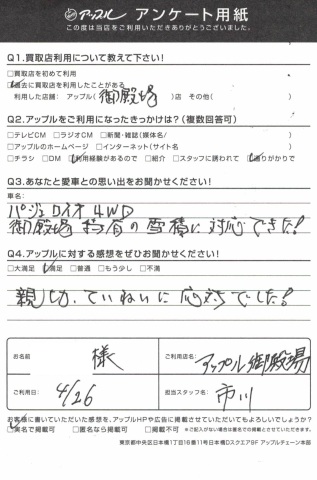 アップル アンケート用紙
この度は当店をご利用いただきありがとうございました。
Q1.買取店利用について教えて下さい!
□買取店を初めて利用
□過去に買取店を利用したことがある
利用した店舗: アップル(御殿場)店 その他( )
Q2.アップルをご利用になったきっかけは?(複数回答可)
□テレビCM □ラジオCM □新聞・雑誌(媒体名/ )
□アップルのホームページ □インターネット(サイト名 )
□チラシ □DM □利用経験があるので □紹介 □スタッフに誘われて □通りがかりで
Q3.あなたと愛車との思い出をお聞かせください!
車名:
パジェロイオ 4WD
御殿場 特有の雪積に対応できた!
Q4.アップルに対する感想をぜひお聞かせください!
□大満足 □満足 □普通 □もう少し □不満
親切、ていねいに応対でした!
お名前 様
ご利用店名: アップル御殿場
ご利用日: 4/26
担当スタッフ名: 市川
お客様に書いていただいた感想を、アップルHPや広告に掲載させていただいてもよろしいでしょうか?
□実名で掲載可 □匿名なら掲載可 □掲載不可 ※ご記入がない場合は匿名での掲載とさせていただきます。
東京都中央区日本橋1丁目16番11号日本橋Dスクエア9F アップルチェーン本部